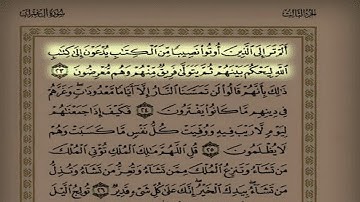 سورة آل عمران الجزء الثالث
ألم تر إلى الذين أوتوا نصيبا من الكتاب يدعون إلى كتاب
الله ليحكم بينهم ثم يتولى فريق منهم وهم معرضون ٢٣
ذلك بأنهم قالوا لن تمسنا النار إلا أياما معدودات وغرهم
في دينهم ما كانوا يفترون ٢٤ فكيف إذا جمعناهم
ليوم لا ريب فيه ووفيت كل نفس ما كسبت وهم
لا يظلمون ٢٥ قل اللهم مالك الملك تؤتي الملك
من تشاء وتنزع الملك ممن تشاء وتعز من تشاء وتذل
من تشاء بيدك الخير إنك على كل شيء قدير ٢٦ تولج الليل